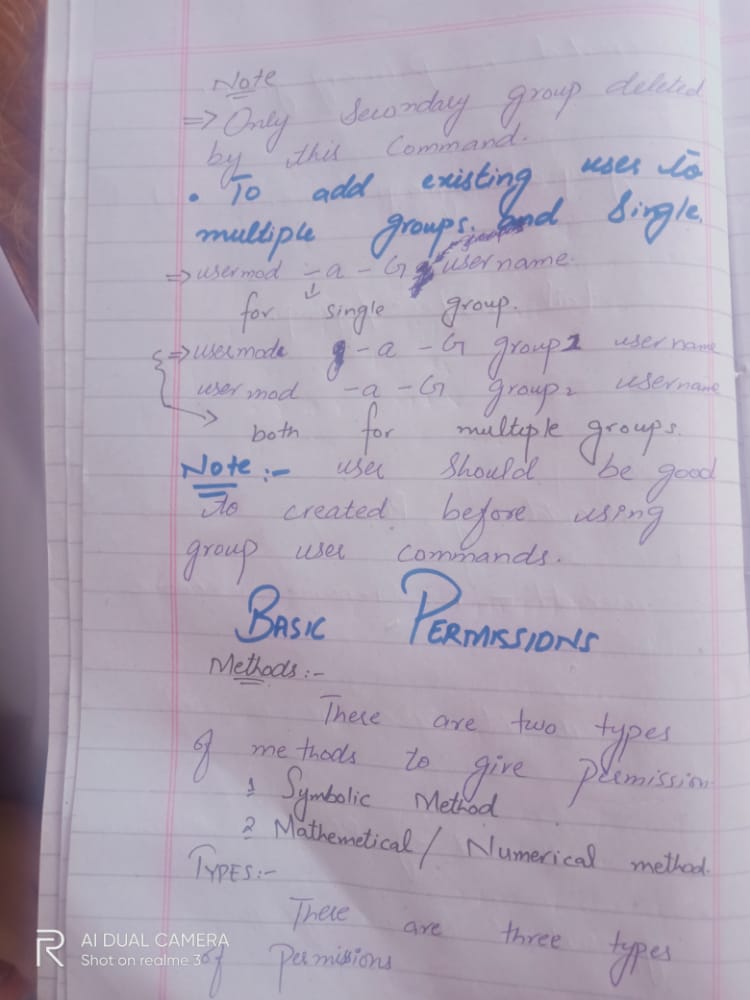 Note
=> Only Secondary group deleted
by this Command.
• To add existing user to
multiple groups. and Single.
=> usermod -a -G username.
for single group.
=> usermode -a -G group1 username
usermod -a -G group2 username
both for multiple groups.
Note:- user should be good
to created before using
group user commands.
BASIC PERMISSIONS
Methods:-
There are two types
of methods to give permission
1 Symbolic Method
2 Mathemetical / Numerical method.
TYPES:-
There are three types
of permissions
R AI DUAL CAMERA
Shot on realme 3